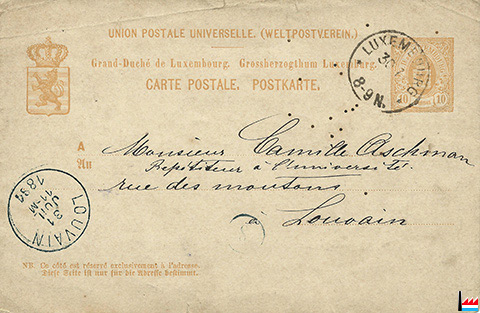 UNION POSTALE UNIVERSELLE. (WELTPOSTVEREIN.)
Grand-Duché de Luxembourg. Grossherzogthum Luxemburg.
CARTE POSTALE. POSTKARTE.
LUXEMBOURG
8-9N.
10 10
A
An
Monsieur Camille Aschman
Répétiteur à l'université
rue des moutons
à Louvain
LOUVAIN
31
JUIL
11-M
1881
NB. Ce côté est réservé exclusivement à l'adresse.
Diese Seite ist nur für die Adresse bestimmt.